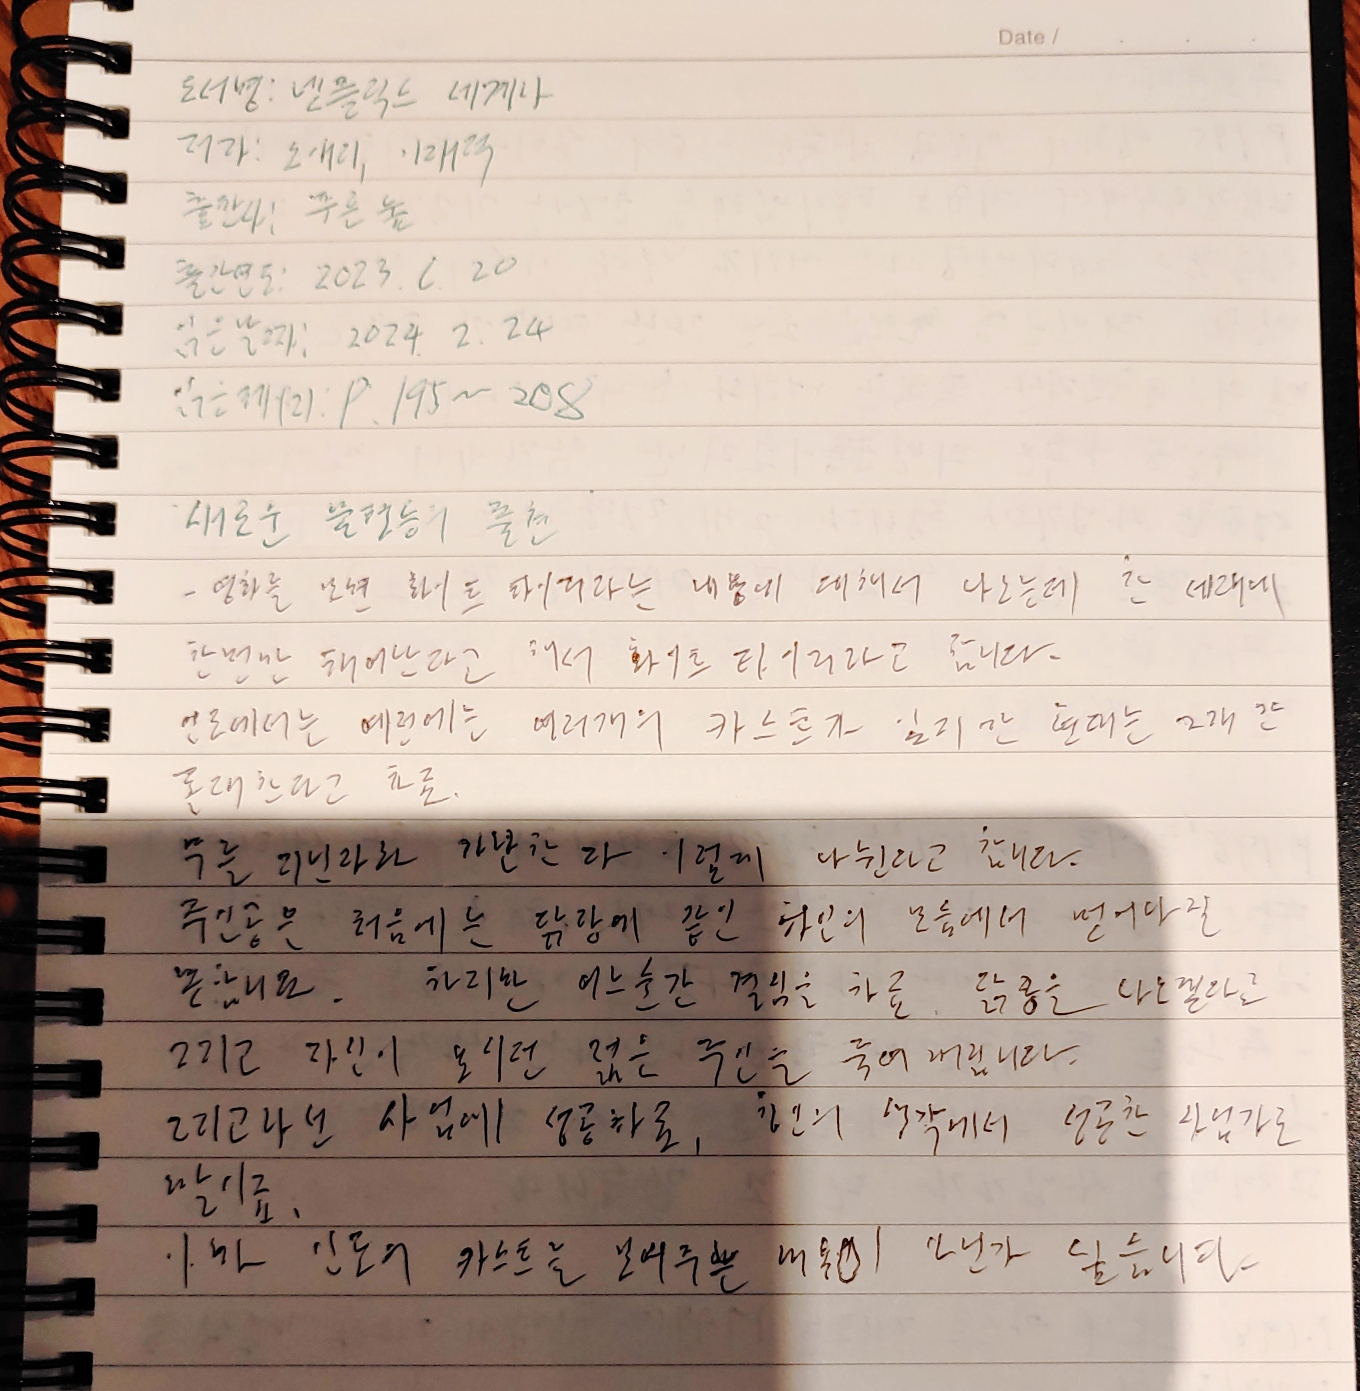 Date /
도서명: 넷플릭스 세계사
저자: 오애리, 이재덕
출판사: 푸른 숲
출간연도: 2023. 6. 20
읽은날짜: 2024. 2. 24
읽은페이지: P. 195~208
새로운 불평등의 출현
- 영화를 보면 화이트 타이거라는 내용에 대해서 나오는데 한 세대에
한번만 태어난다고 해서 화이트 타이거라고 합니다.
인도에서는 예전에는 여러개의 카스트가 있지만 현대는 2개만
존대한다고 하죠.
부를 지닌자와 가난한 자 이렇게 나뉜다고 합니다.
주인공은 처음에는 닭장에 갇인 하인의 모습에서 벗어나질
못합니다. 하지만 어느순간 결심을 하죠. 닭장을 나오겠다고
그리고 자신이 모시던 젊은 주인을 죽여버립니다.
그리고나선 사업에 성공하죠, 하인의 생각에서 성공한 사업가로
말이죠.
이 인도의 카스트를 보여주는 내용이 아닌가 싶습니다.